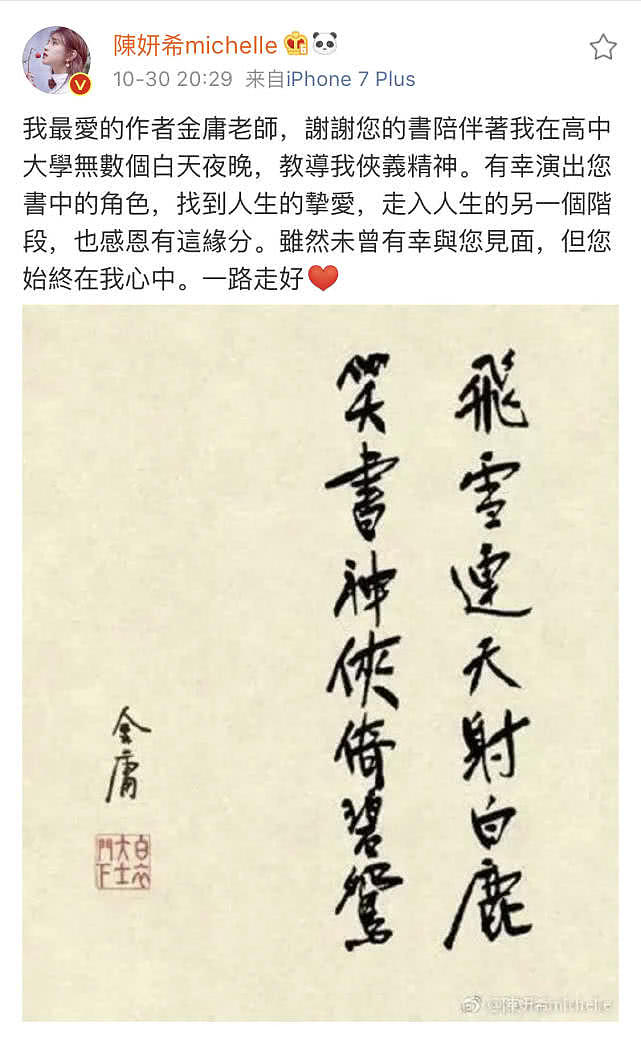 陳妍希michelle
10-30 20:29 来自iPhone 7 Plus
我最愛的作者金庸老師，謝謝您的書陪伴著我在高中
大學無數個白天夜晚，教導我俠義精神。有幸演出您
書中的角色，找到人生的摯愛，走入人生的另一個階
段，也感恩有這緣分。雖然未曾有幸與您見面，但您
始終在我心中。一路走好❤️
飛雪連天射白鹿
笑書神俠倚碧鴛
金庸
白衣
大士
門下
@陳妍希michelle